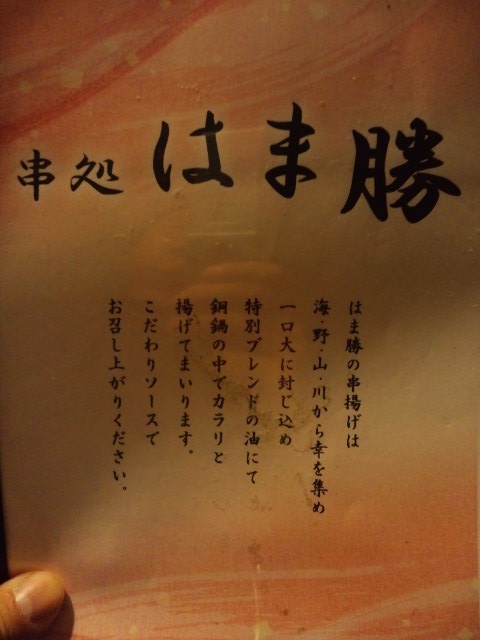 串処 はま勝
はま勝の串揚げは
海・野・山・川から幸を集め
一口大に封じ込め
特別ブレンドの油にて
銅鍋の中でカラリと
揚げてまいります。
こだわりソースで
お召し上がりください。